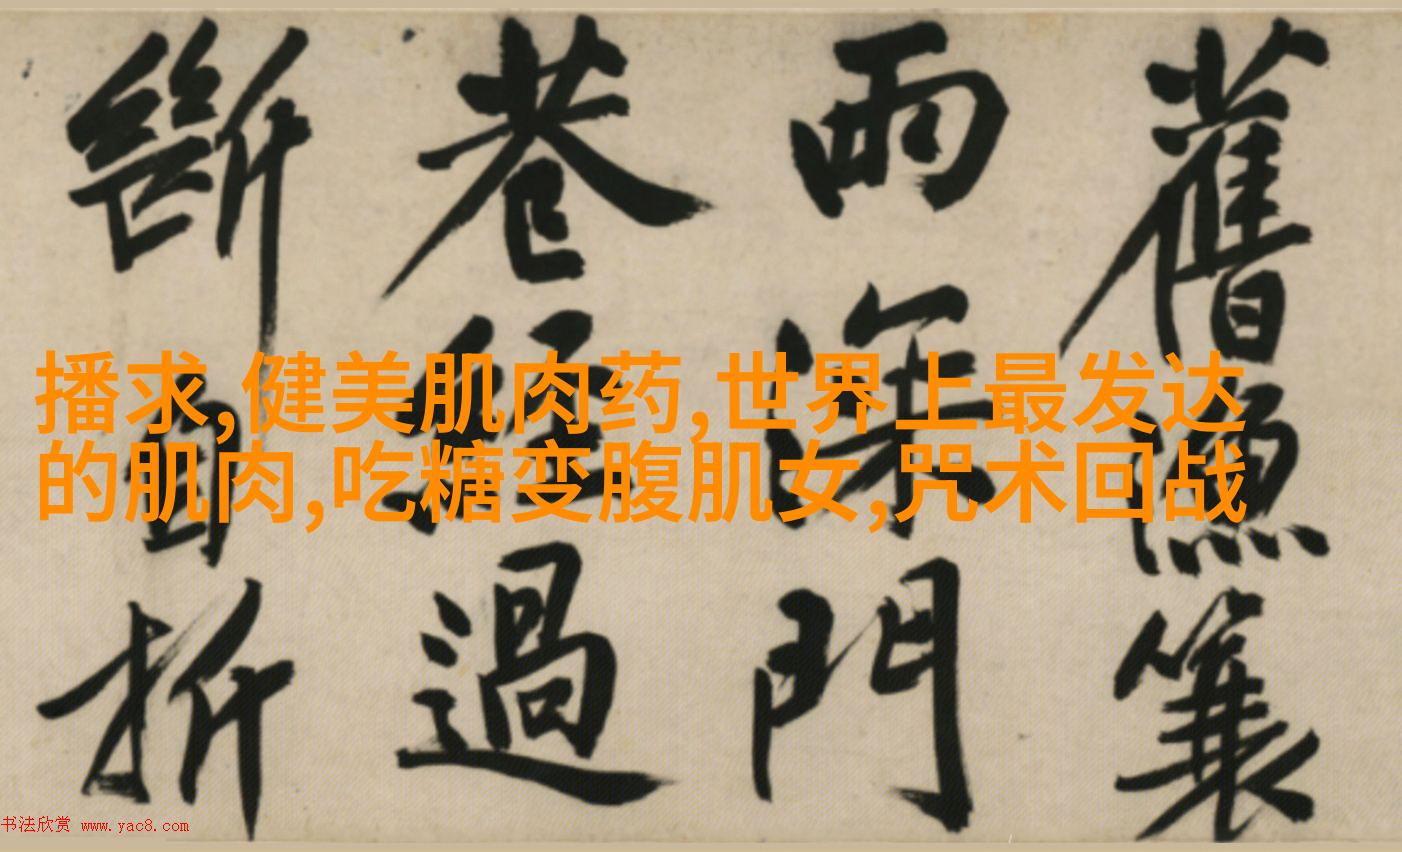 舊漁簑
雨深門
巷經過
斷自折
播求,健美肌肉药,世界上最发达
的肌肉,吃糖变腹肌女,咒术回战
书法欣赏 www.yac8.com